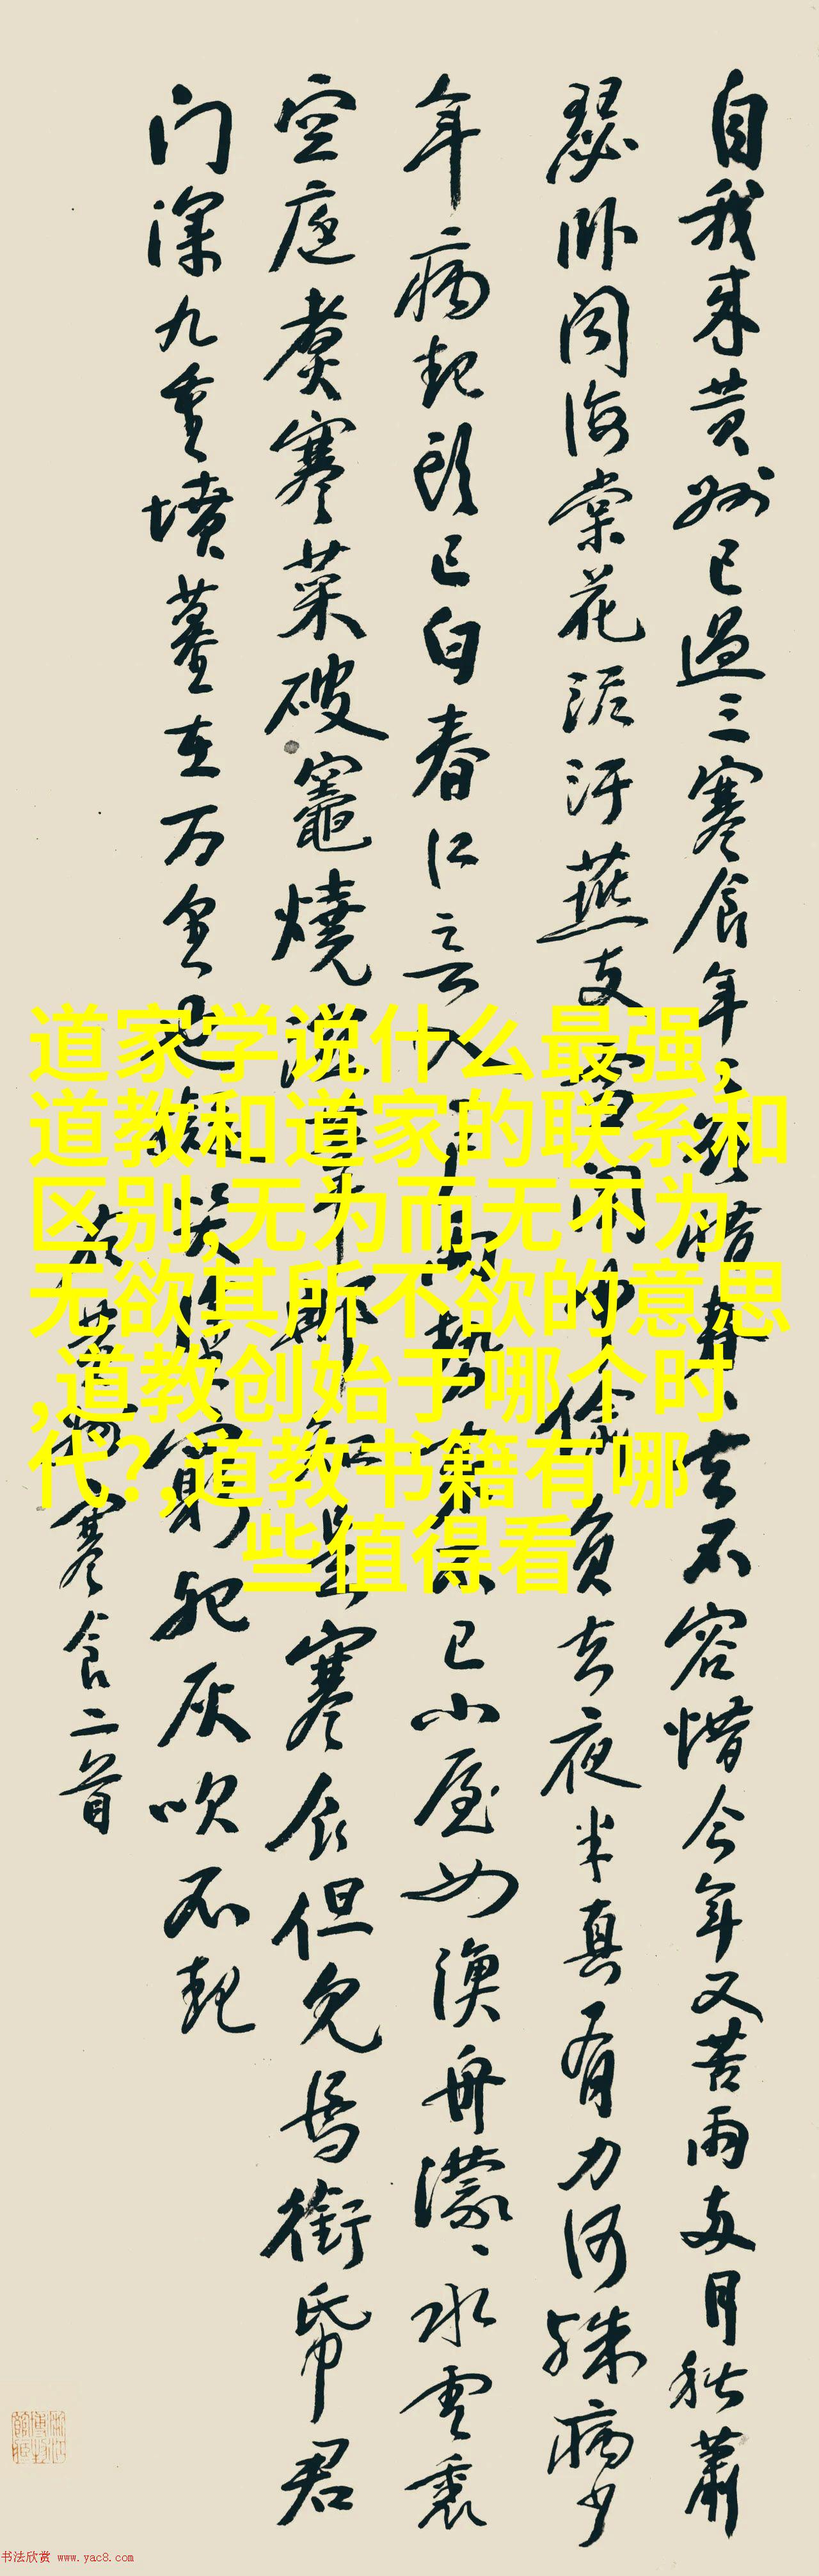 自我来黄州已過三寒食年〻欲惜春〻去不容惜今年又苦雨两月秋蕭
瑟卧闻海棠花泥汙燕支雪闇中偷負去夜半真有力何殊病少
年病起头已白春江言入户雨勢来不已小屋如渔舟濛〻水雲裏
空庖煮寒菜破竈燒湿苇那知是寒食但見烏銜帋君
门深九重墳墓在万里也擬哭途窮死灰吹不起
寒食二首
道家学说什么最强,
道教和道家的联系和
区别,无为而无不为
无欲其所不欲的意思
,道教创始于哪个时
代?,道教书籍有哪
些值得看
书法欣赏 www.yac8.com